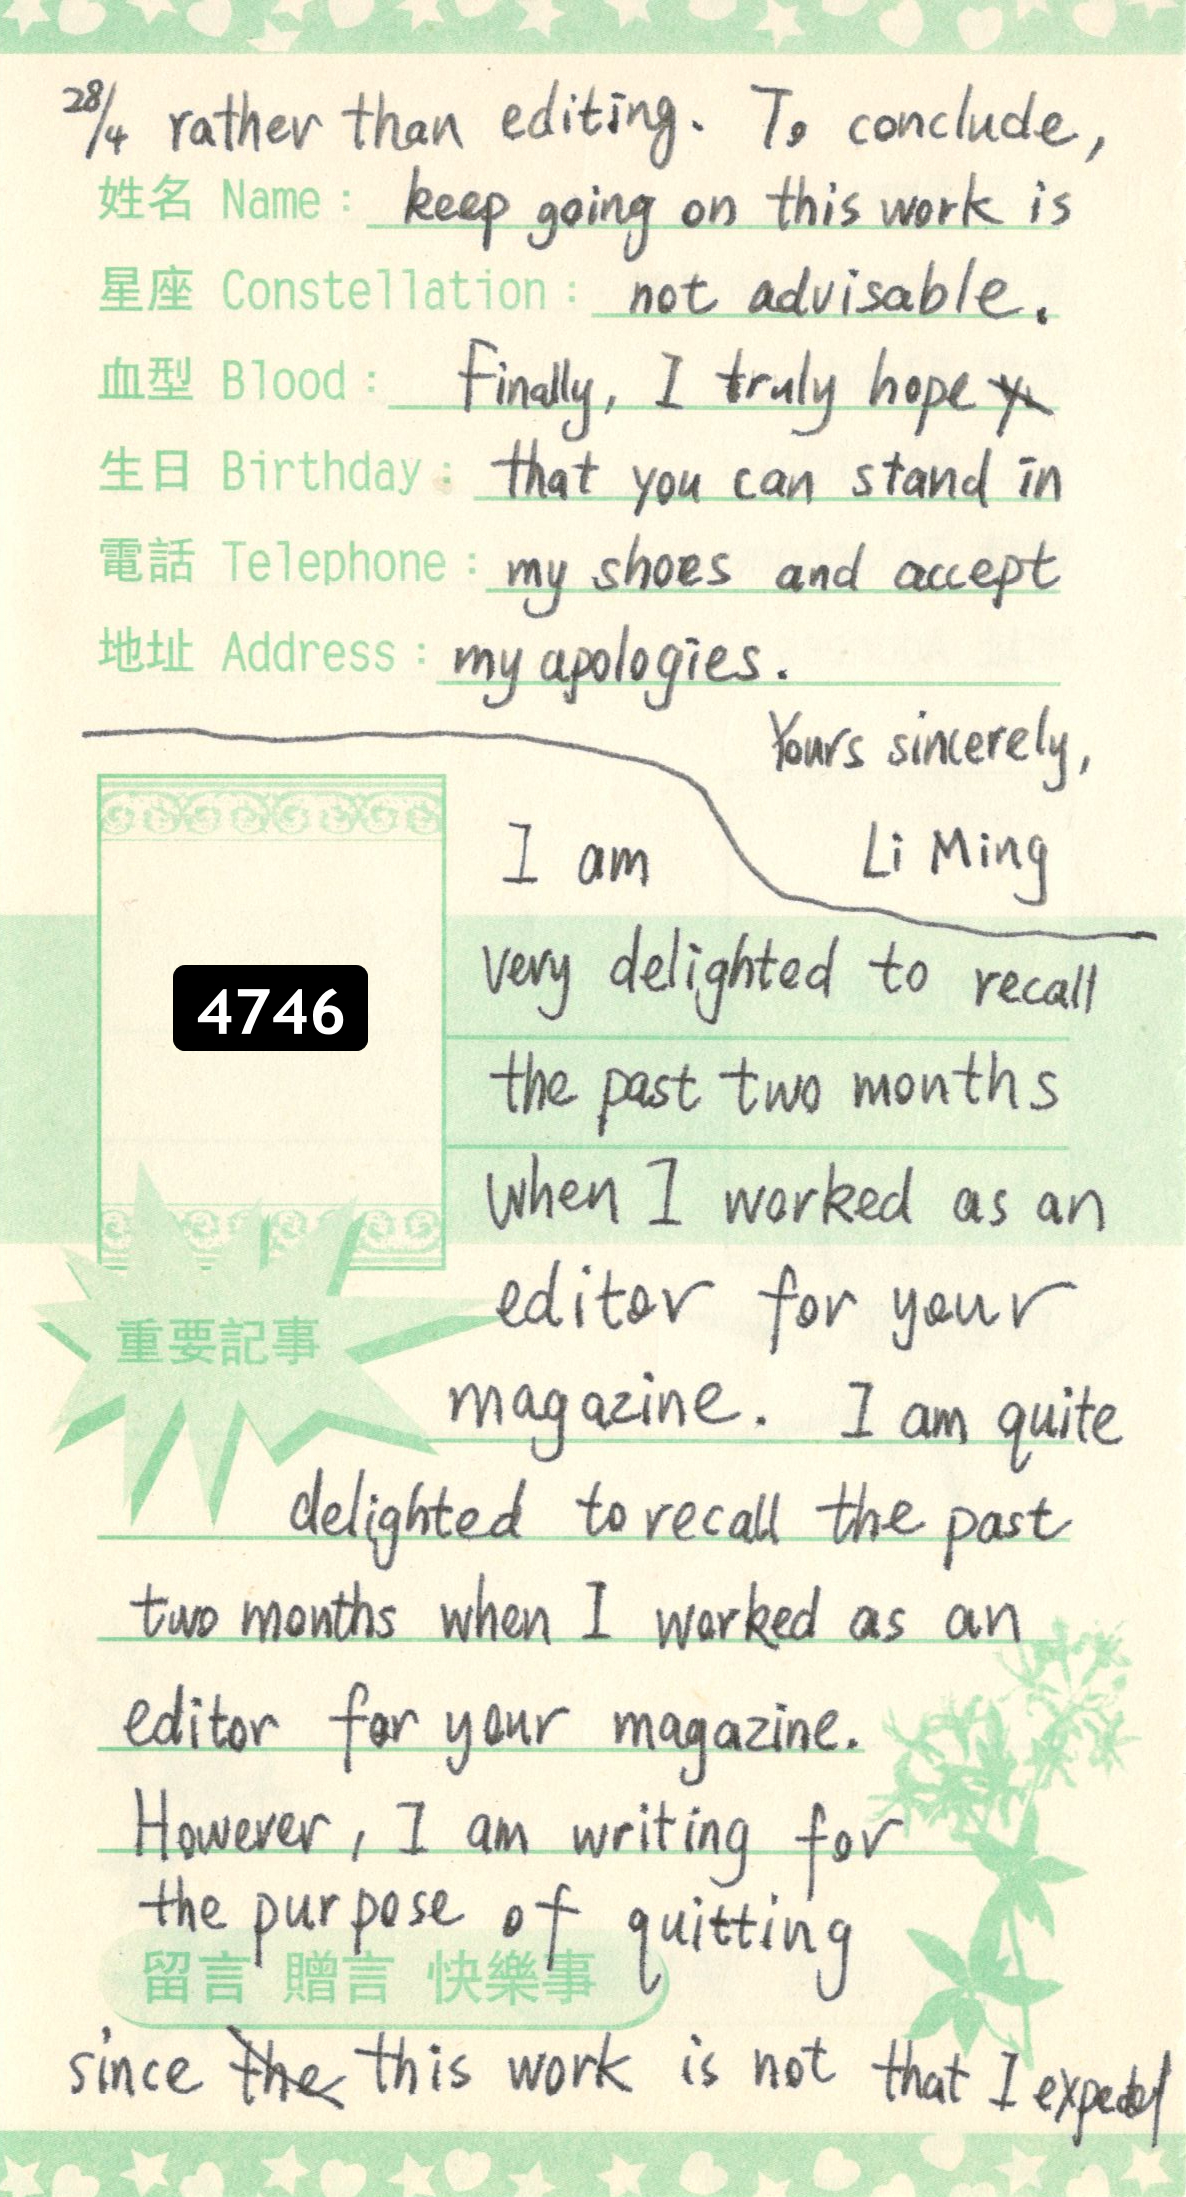 28/4 rather than editing. To conclude,
姓名 Name: keep going on this work is
星座 Constellation: not advisable.
血型 Blood: Finally, I truly hope
生日 Birthday: that you can stand in
電話 Telephone: my shoes and accept
地址 Address: my apologies.
Yours sincerely,
Li Ming
I am
very delighted to recall
the past two months
4746
when I worked as an
editor for your
重要記事
magazine. I am quite
delighted to recall the past
two months when I worked as an
editor for your magazine.
However, I am writing for
the purpose of quitting
留言 贈言 快樂事
since the this work is not that I expected